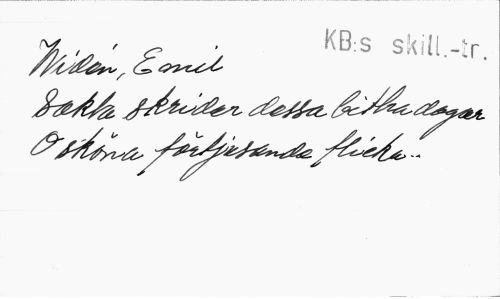 KB:s skill.-tr.
Widén, Emil
Sakta skrider dessa bittra dagar
O sköna förtjusande flicka..